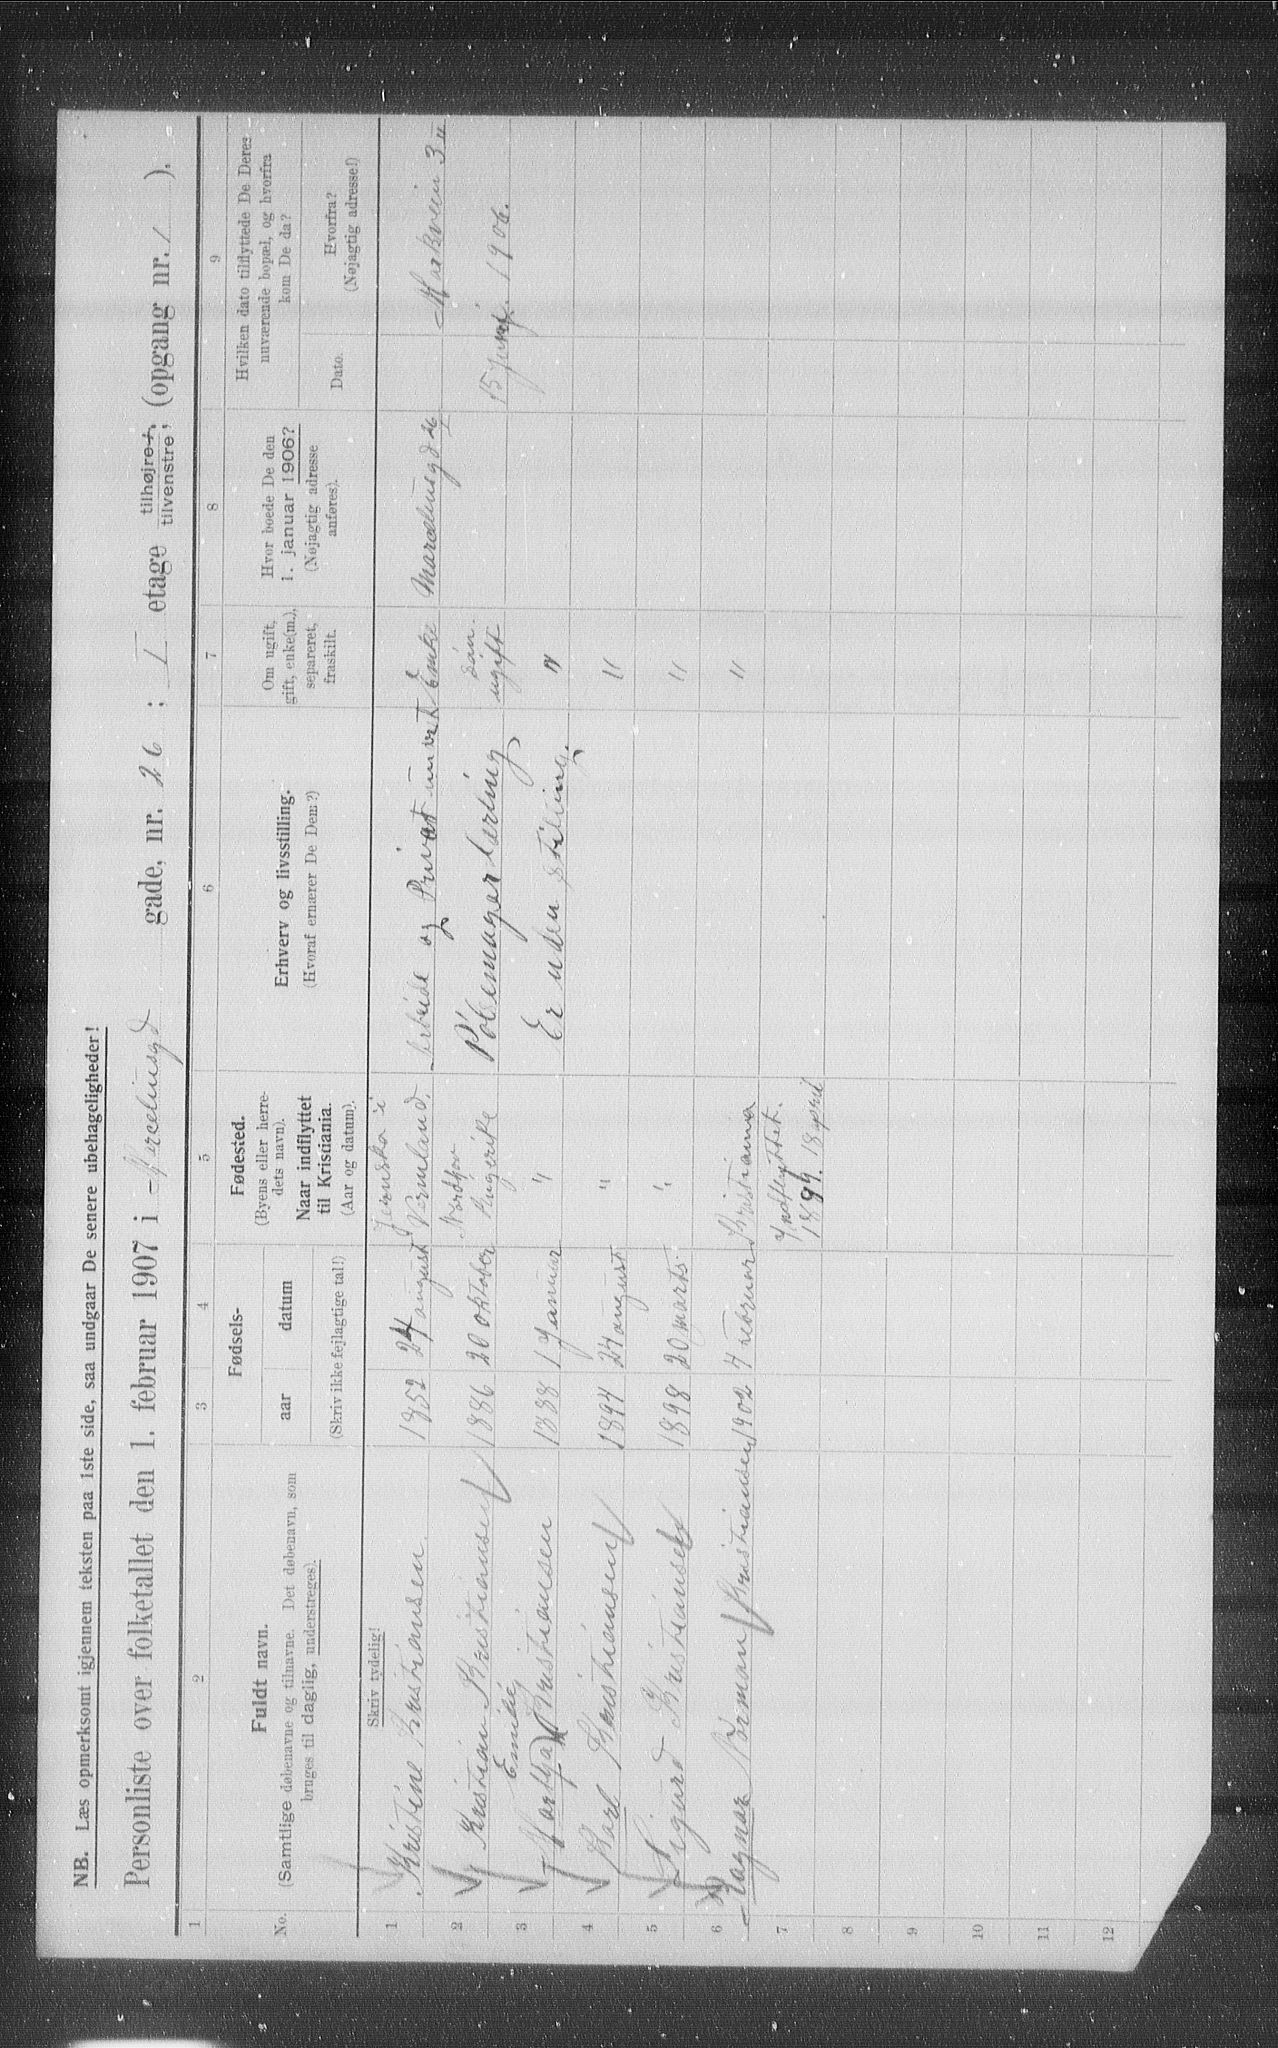 NB. Læs opmerksomt igjennem teksten paa 1ste side, saa undgaar De senere ubehageligheder!
Personliste over folketallet den 1. februar 1907 i Marcelinsgd gade, nr. 26 ; I etage tilhøjre, tilvenstre, (opgang nr. 1 ).
1 2 3 4 5 6 7 8 9
No.
Fuldt navn.
(Samtlige døbenavne og tilnavne. Det døbenavn, som
bruges til daglig, understreges).
Fødsels-
aar datum
(Skriv ikke fejlagtige tal!)
Fødested.
(Byens eller herre-
dets navn).
Naar indflyttet
til Kristiania.
(Aar og datum).
Erhverv og livsstilling.
(Hvoraf ernærer De Dem?)
Om ugift,
gift, enke(m.),
separeret,
fraskilt.
Hvor boede De den
1. januar 1906?
(Nøjagtig adresse
anføres).
Hvilken dato tilflyttede De Deres
nuværende bopæl, og hvorfra
kom De da?
Dato.
Hvorfra?
(Nøjagtig adresse!)
Skriv tydelig!
1 Kristine Kristiansen 1852 24 august Vermland. og Privat Enke Marcelinsgd 26 Markvein 3
2 Kristian Kristiansen 1886 20 oktober Nordhov Ringerike lærling søn ugift 15 1906.
3 Emilie Kristiansen 1888 1 Januar " Er uden stilling. "
4 Karl Kristiansen 1894 24 august " "
5 Sigurd Kristiansen 1898 20 marts. " "
6 Ragnar Norman Kristiansen 1902 4 februar Kristiania "
7 Indflyttet.
1899. 18 april
8
9
10
11
12